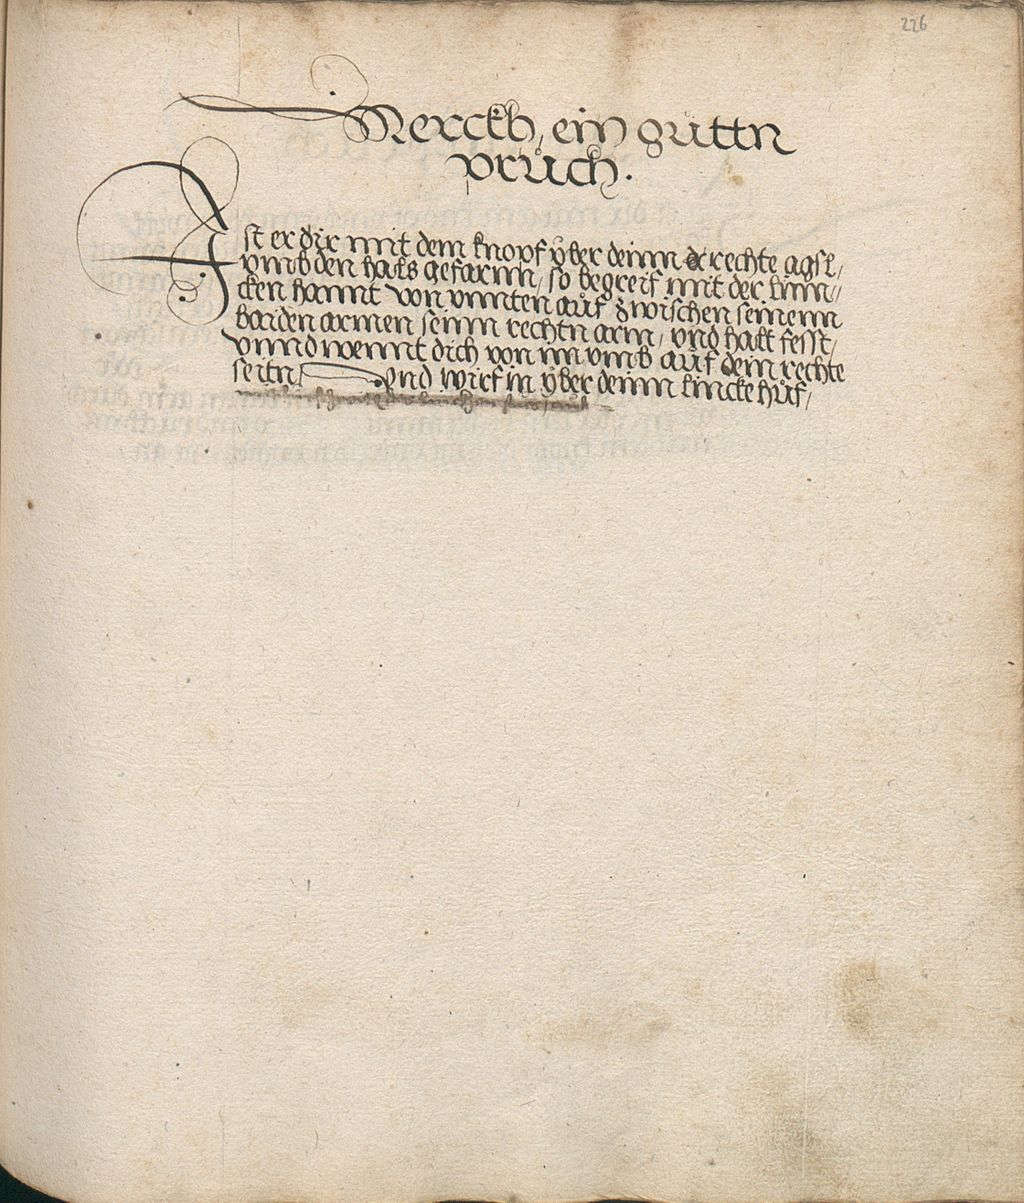 226
Merckh, ein guttn
pruch.
Ist er dir mit dem knopf yber deinn rechte agsl,
vmb den hals gefarnn, so begreif mit der linn//
cken hannt von vnnten auf zwischen seinenn
baiden armen seinn rechtn arm, vnd halt fesst,
vnnd wennt dich von im vmb auf dein rechte
seitn, vnd wirf in yber deinn lincke huf,